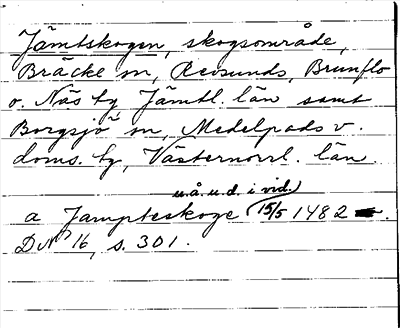 Jämtskogen, skogsområde,
Bräcke sn, Revsunds, Brunflo
o. Näs tg Jämtl. län samt
Borgsjö sn, Medelpads v.
doms. tg, Västernorrl. län.
u.å.u.d. i vid.)
a Jampteskoge (15/5 1482.
DN 16, s. 301.